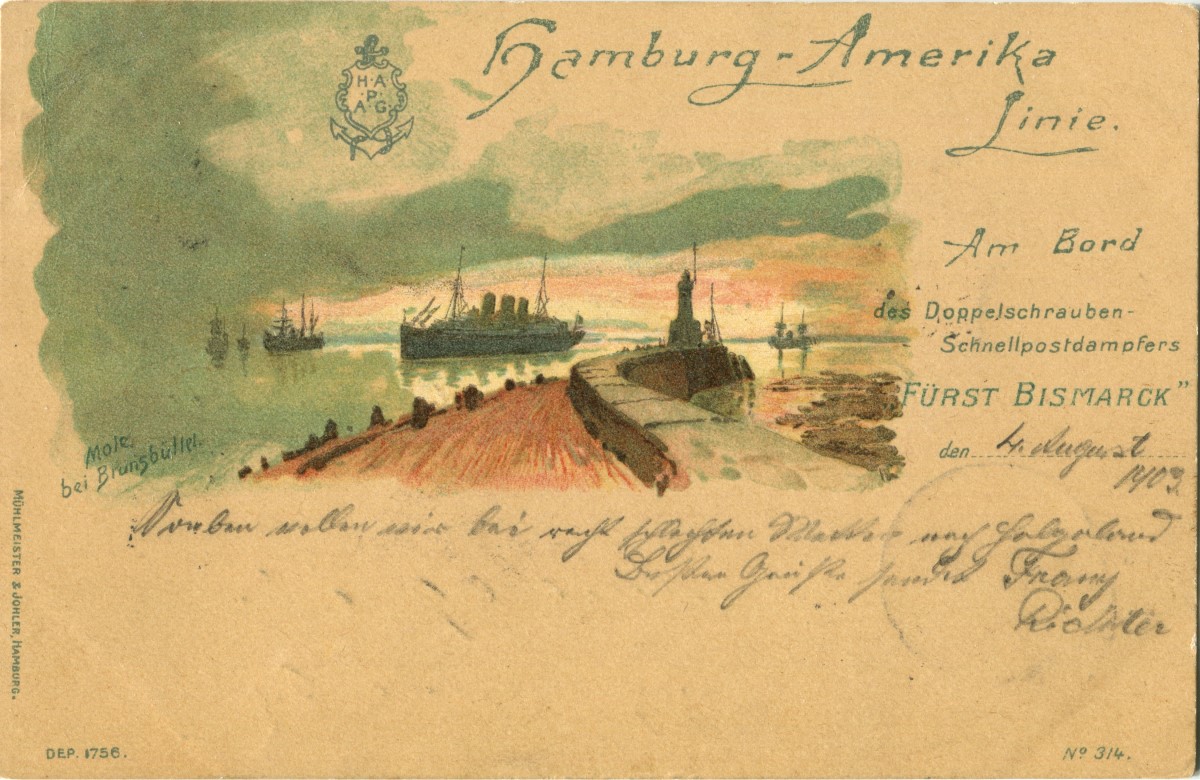 Hamburg-Amerika
Linie.
H·A
·P·
A·G·
Am Bord
des Doppelschrauben-
Schnellpostdampfers
FÜRST BISMARCK"
den 4. August
1903
Mole
bei Brunsbüttel.
wollen wir bei recht schlechten Wetter nach Helgoland
Besten Grüße sendet Franz
Richter
MÜHLMEISTER & JOHLER, HAMBURG.
DEP. 1756.
Nº 314.